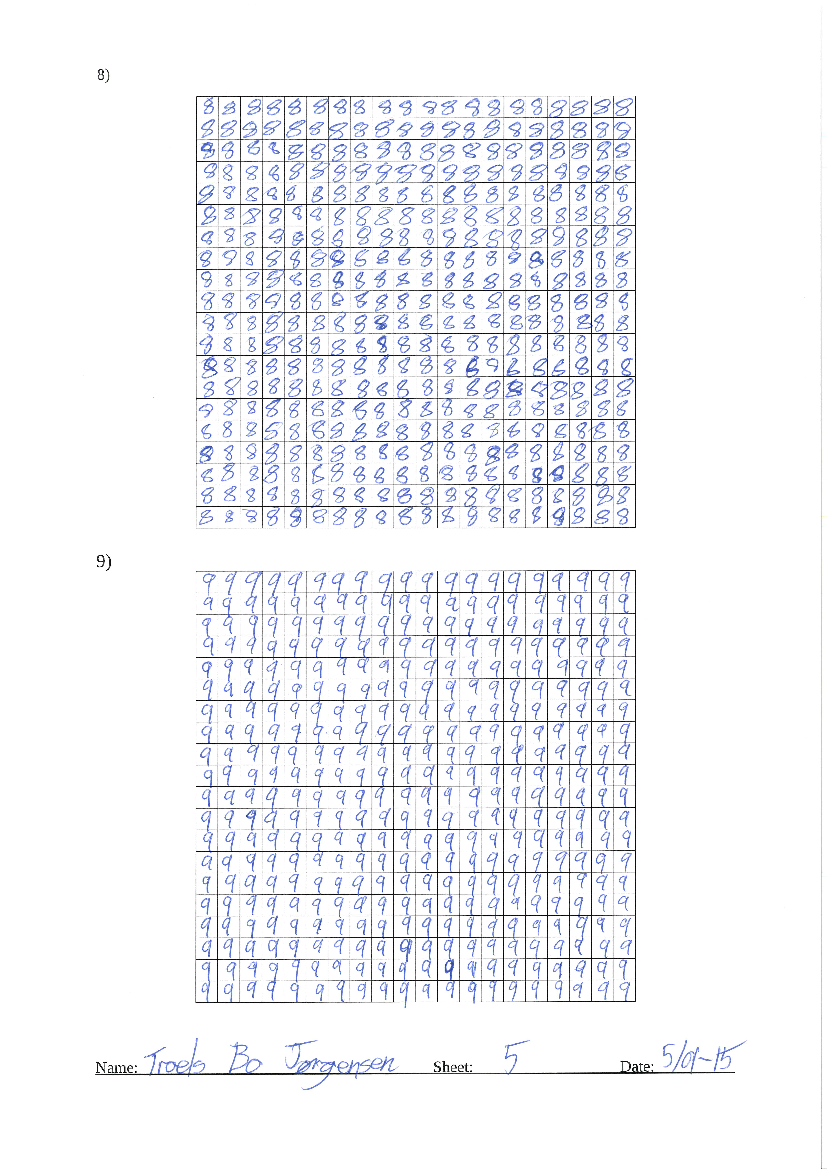 8)
8 8 8 8 8 8 8 8 8 8 8 8 8 8 8 8 8 8 8 8
8 8 8 8 8 8 8 8 8 8 8 8 8 8 8 8 8 8 8 8
8 8 8 8 8 8 8 8 8 8 8 8 8 8 8 8 8 8 8 8
8 8 8 8 8 8 8 8 8 8 8 8 8 8 8 8 8 8 8 8
8 8 8 8 8 8 8 8 8 8 8 8 8 8 8 8 8 8 8 8
8 8 8 8 8 8 8 8 8 8 8 8 8 8 8 8 8 8 8 8
8 8 8 8 8 8 8 8 8 8 8 8 8 8 8 8 8 8 8 8
8 8 8 8 8 8 8 8 8 8 8 8 8 8 8 8 8 8 8 8
8 8 8 8 8 8 8 8 8 8 8 8 8 8 8 8 8 8 8 8
8 8 8 8 8 8 8 8 8 8 8 8 8 8 8 8 8 8 8 8
8 8 8 8 8 8 8 8 8 8 8 8 8 8 8 8 8 8 8 8
8 8 8 8 8 8 8 8 8 8 8 8 8 8 8 8 8 8 8 8
8 8 8 8 8 8 8 8 8 8 8 8 8 8 8 8 8 8 8 8
8 8 8 8 8 8 8 8 8 8 8 8 8 8 8 8 8 8 8 8
8 8 8 8 8 8 8 8 8 8 8 8 8 8 8 8 8 8 8 8
8 8 8 8 8 8 8 8 8 8 8 8 8 8 8 8 8 8 8 8
8 8 8 8 8 8 8 8 8 8 8 8 8 8 8 8 8 8 8 8
8 8 8 8 8 8 8 8 8 8 8 8 8 8 8 8 8 8 8 8
8 8 8 8 8 8 8 8 8 8 8 8 8 8 8 8 8 8 8 8
8 8 8 8 8 8 8 8 8 8 8 8 8 8 8 8 8 8 8 8
9)
9 9 9 9 9 9 9 9 9 9 9 9 9 9 9 9 9 9 9 9
9 9 9 9 9 9 9 9 9 9 9 9 9 9 9 9 9 9 9 9
9 9 9 9 9 9 9 9 9 9 9 9 9 9 9 9 9 9 9 9
9 9 9 9 9 9 9 9 9 9 9 9 9 9 9 9 9 9 9 9
9 9 9 9 9 9 9 9 9 9 9 9 9 9 9 9 9 9 9 9
9 9 9 9 9 9 9 9 9 9 9 9 9 9 9 9 9 9 9 9
9 9 9 9 9 9 9 9 9 9 9 9 9 9 9 9 9 9 9 9
9 9 9 9 9 9 9 9 9 9 9 9 9 9 9 9 9 9 9 9
9 9 9 9 9 9 9 9 9 9 9 9 9 9 9 9 9 9 9 9
9 9 9 9 9 9 9 9 9 9 9 9 9 9 9 9 9 9 9 9
9 9 9 9 9 9 9 9 9 9 9 9 9 9 9 9 9 9 9 9
9 9 9 9 9 9 9 9 9 9 9 9 9 9 9 9 9 9 9 9
9 9 9 9 9 9 9 9 9 9 9 9 9 9 9 9 9 9 9 9
9 9 9 9 9 9 9 9 9 9 9 9 9 9 9 9 9 9 9 9
9 9 9 9 9 9 9 9 9 9 9 9 9 9 9 9 9 9 9 9
9 9 9 9 9 9 9 9 9 9 9 9 9 9 9 9 9 9 9 9
9 9 9 9 9 9 9 9 9 9 9 9 9 9 9 9 9 9 9 9
9 9 9 9 9 9 9 9 9 9 9 9 9 9 9 9 9 9 9 9
9 9 9 9 9 9 9 9 9 9 9 9 9 9 9 9 9 9 9 9
9 9 9 9 9 9 9 9 9 9 9 9 9 9 9 9 9 9 9 9
Name: Troels Bo Jørgensen Sheet: 5 Date: 5/01-15